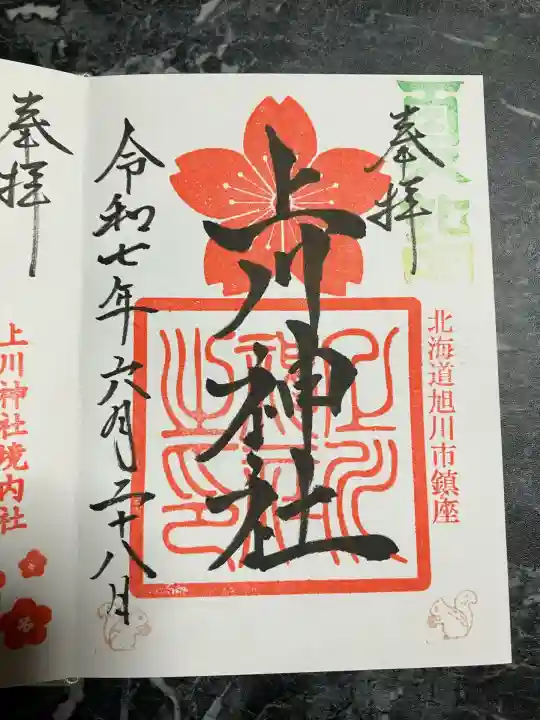 奉拝
北海道旭川市鎮座
上川神社
令和七年六月二十八日
奉拝
上川神社境内社